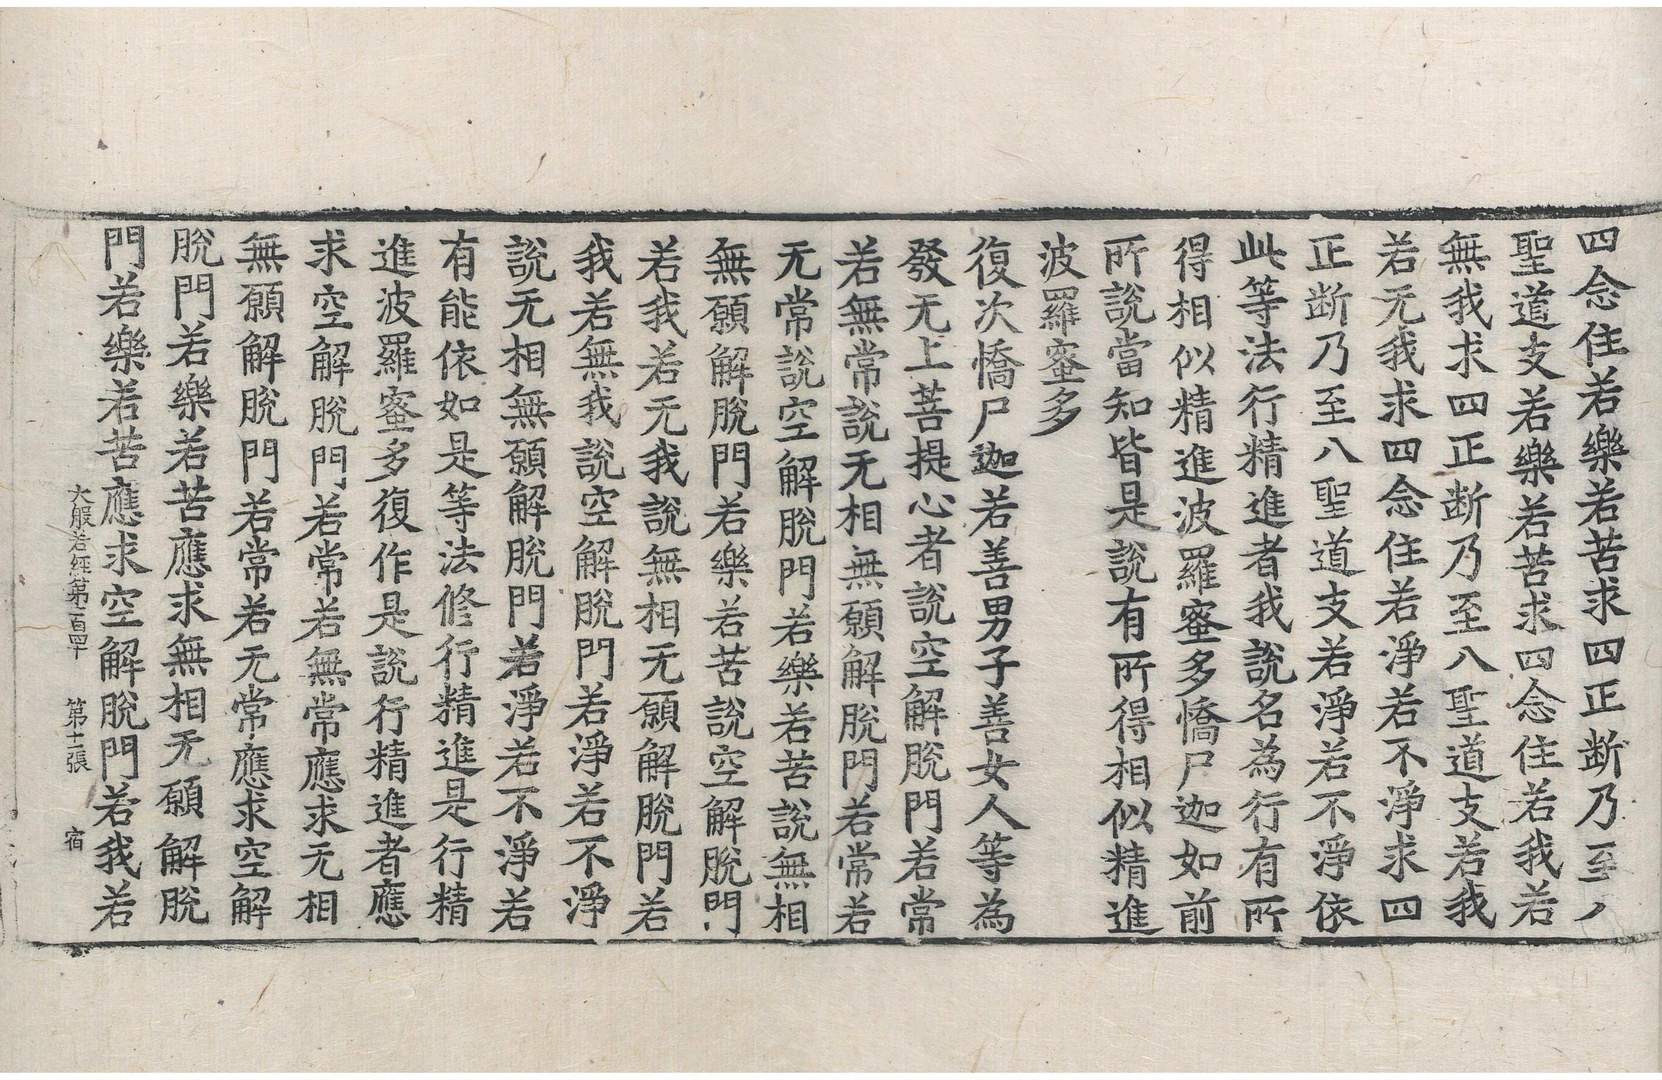 四念住若樂若苦求四正断乃至八
聖道支若樂若苦求四念住若我若
無我求四正断乃至八聖道支若我
若无我求四念住若淨若不淨求四
正断乃至八聖道支若淨若不淨依
此等法行精進者我說名為行有所
得相似精進波羅蜜多憍尸迦如前
所說當知皆是說有所得相似精進
波羅蜜多
復次憍尸迦若善男子善女人等為
發无上菩提心者說空解脫門若常
若無常說无相無願解脫門若常若
无常說空解脫門若樂若苦說無相
無願解脫門若樂若苦說空解脫門
若我若无我說無相无願解脫門若
我若無我說空解脫門若淨若不淨
說无相無願解脫門若淨若不淨若
有能依如是等法修行精進是行精
進波羅蜜多復作是說行精進者應
求空解脫門若常若無常應求无相
無願解脫門若常若无常應求空解
脫門若樂若苦應求無相无願解脫
門若樂若苦應求空解脫門若我若
大般若経第一百四十 第十一張 宿